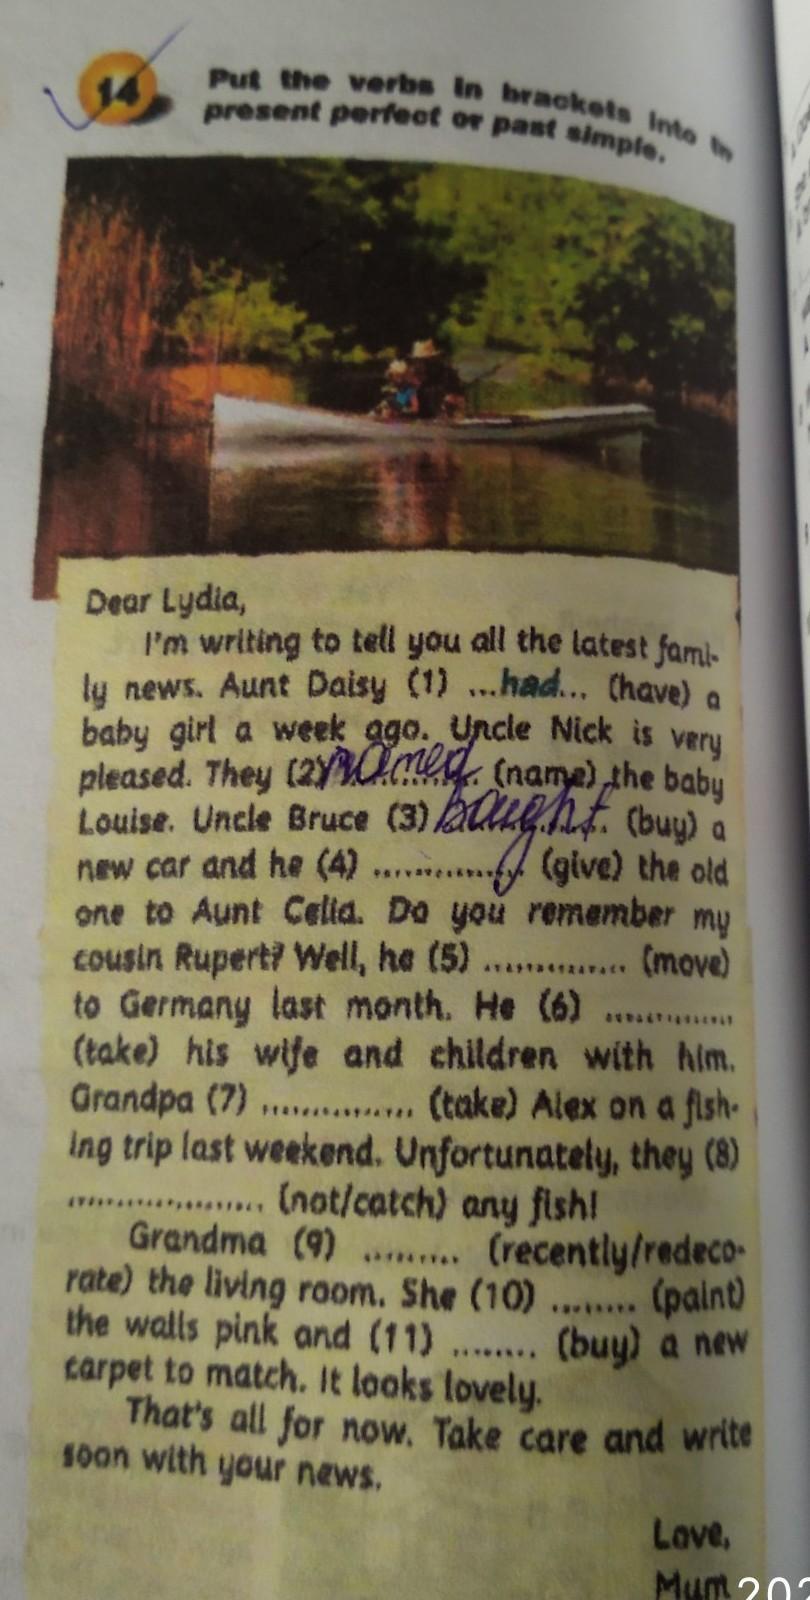 14
Put the verbs in brackets into th
present perfect or past simple.
Dear Lydia,
I'm writing to tell you all the latest fami-
ly news. Aunt Daisy (1) ...had... (have) a
baby girl a week ago. Uncle Nick is very
pleased. They (2) named (name) the baby
Louise. Uncle Bruce (3) bought (buy) a
new car and he (4) ............... (give) the old
one to Aunt Celia. Do you remember my
cousin Rupert? Well, he (5) ............... (move)
to Germany last month. He (6) ...............
(take) his wife and children with him.
Grandpa (7) ............... (take) Alex on a fish-
ing trip last weekend. Unfortunately, they (8)
.................... (not/catch) any fish!
Grandma (9) ......... (recently/redeco-
rate) the living room. She (10) ........ (paint)
the walls pink and (11) ........ (buy) a new
carpet to match. It looks lovely.
That's all for now. Take care and write
soon with your news.
Love,
Mum
202